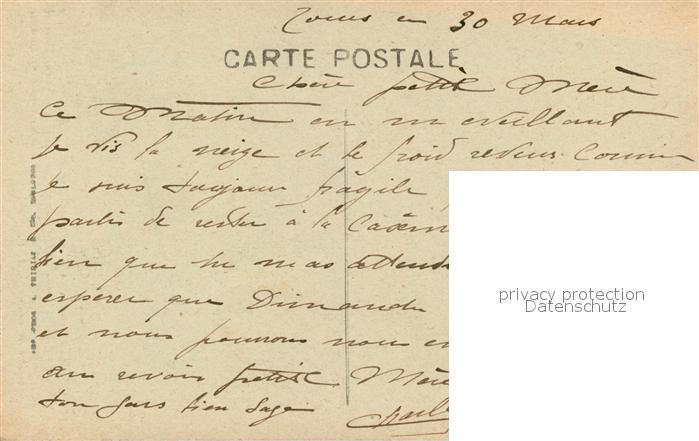 Tours ce 30 Mars
CARTE POSTALE
Chère petite Mère
Ce Matin en m eveillant
je vis la neige et le froid revenus Comme
je suis toujours fragile
partis de rester à la Casern
bien que tu mas attendu
esperer que Dimanche
et nous pourrons nous
au revoir petite Mère
ton gars bien Sage
Charl
privacy protection
Datenschutz